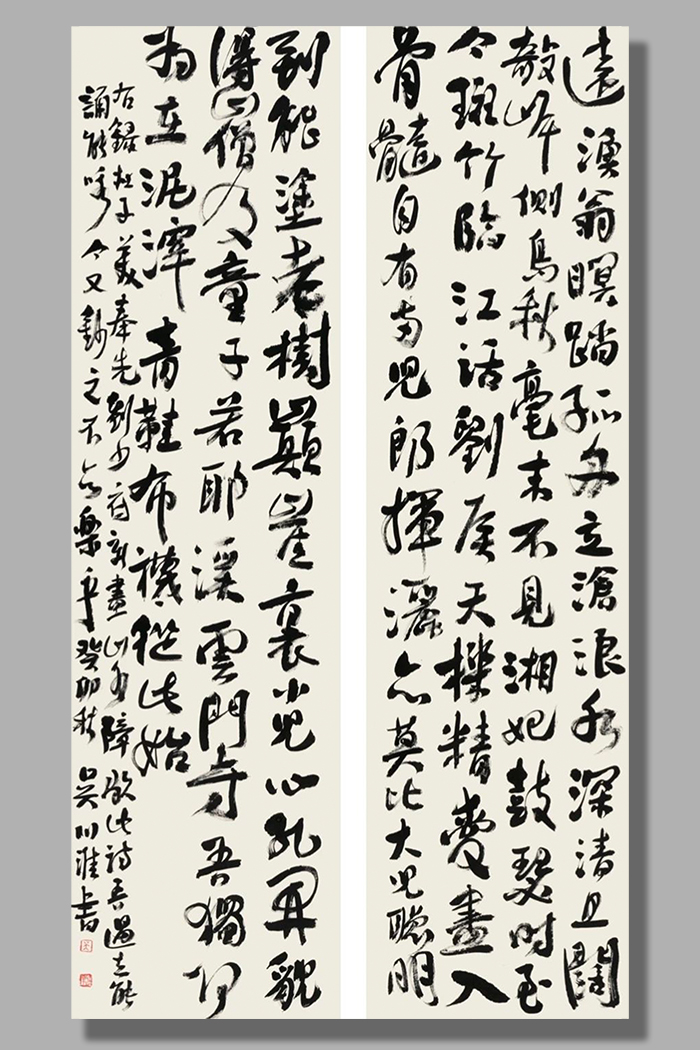 遠漁翁暝踏孤舟立滄浪水深清且闊
敧岸側島秋毫末不見湘妃鼓瑟時至
今斑竹臨江活劉侯天機精愛畫入
骨髓自有兩兒郎揮灑亦莫比大兒聰明
到能塗老樹巔崖裏小兒心孔開貌
得山僧及童子若耶溪雲門寺吾獨何
為在泥滓青鞋布襪從此始
右錄杜子美奉先劉少府新畫山水障歌此詩吾過去能
誦能唱今又鈔之不亦樂乎癸卯秋吳川淮書